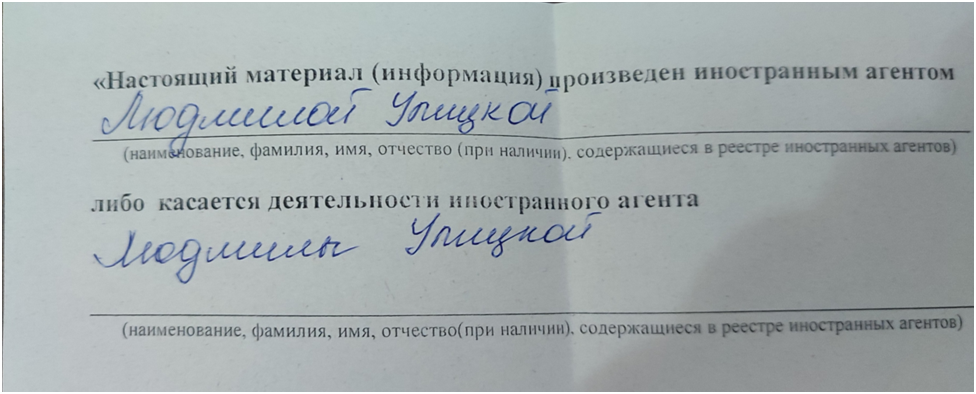 «Настоящий материал (информация) произведен иностранным агентом
Людмилой Улицкой
(наименование, фамилия, имя, отчество (при наличии), содержащиеся в реестре иностранных агентов)
либо касается деятельности иностранного агента
Людмилы Улицкой
(наименование, фамилия, имя, отчество(при наличии), содержащиеся в реестре иностранных агентов)